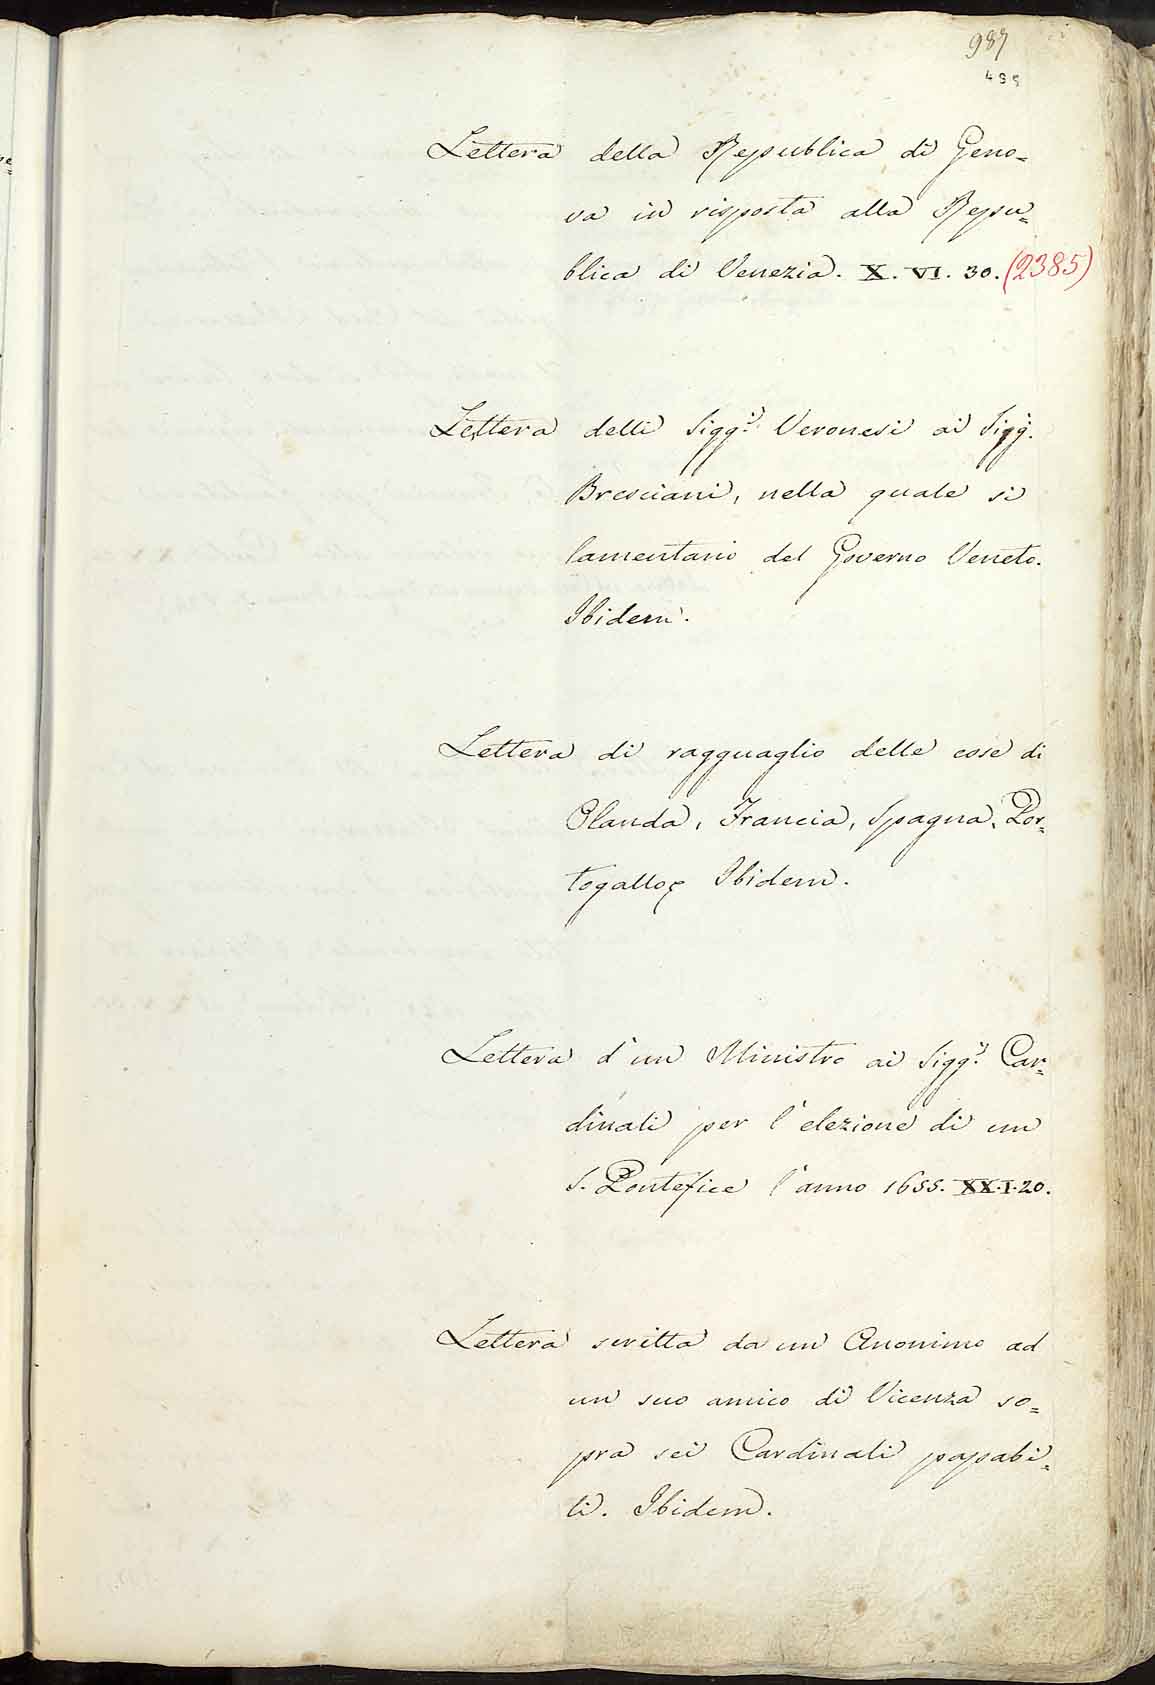 987
499
Lettera della Republica di Geno=
va in risposta alla Repu=
blica di Venezia. X. VI. 30. (2385)
Lettera delli Sigg.i Veronesi ai Sigg.i
Bresciani, nella quale si
lamentano del Governo Veneto.
Ibidem.
Lettera di ragguaglio delle cose di
Olanda, Francia, Spagna, Por=
togallo Ibidem.
Lettera d'un Ministro ai Sigg.i Car=
dinali per l'elezione di un
S. Pontefice l'anno 1655. XX.I.20.
Lettera scritta da un Anonimo ad
un suo amico di Vicenza so=
pra sei Cardinali papabi=
li. Ibidem.